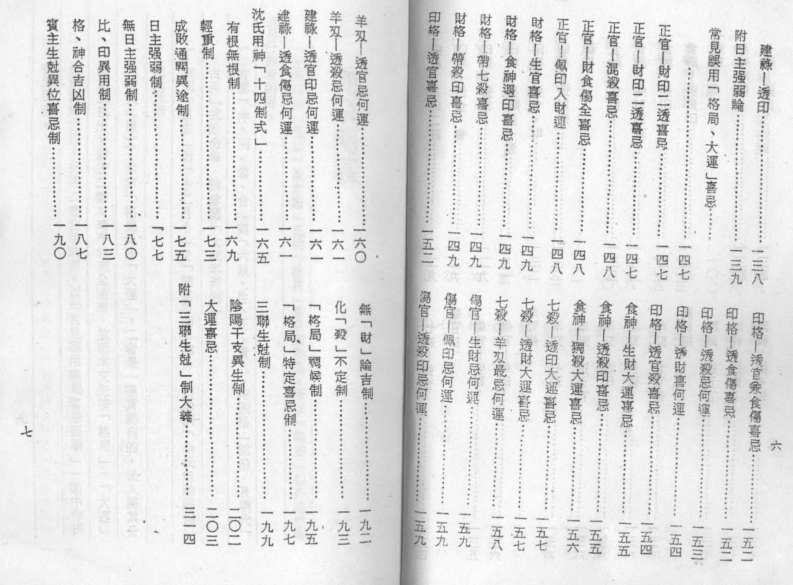 建祿—透印………一三八
附日主强弱論………一三九
常見誤用「格局、大運」喜忌………一四七
正官—財印二透喜忌………一四七
正官—財印二透喜忌………一四七
正官—混殺喜忌………一四八
正官—財食傷全喜忌………一四八
正官—佩印入財運………一四八
財格—生官喜忌………一四九
財格—食神遇印喜忌………一四九
財格—帶七殺喜忌………一四九
財格—帶殺印喜忌………一四九
印格—透官喜忌………一五二
印格—透官兼食傷喜忌………一五二
印格—透食傷喜忌………一五二
印格—透殺忌何運………一五三
印格—透財喜何運………一五四
印格—透官殺喜忌………一五四
食神—生財大運喜忌………一五五
食神—透殺印喜忌………一五五
食神—獨殺大運喜忌………一五六
七殺—透印大運喜忌………一五七
七殺—透財大運喜忌………一五七
七殺—羊刄最忌何運………一五八
傷官—生財忌何運………一五九
傷官—佩印忌何運………一五九
傷官—透殺印忌何運………一五九
六
羊刄—透官忌何運………一六〇
羊刄—透殺忌何運………一六一
建祿—透官印忌何運………一六一
建祿—透食傷忌何運………一六一
沈氏用神「十四制式」………一六五
有根無根制………一六九
輕重制………一七三
成敗通關異途制………一七五
日主强弱制………一七七
無日主强弱制………一八〇
比、印異用制………一八三
格、神合吉凶制………一八七
賓主生尅異位喜忌制………一九〇
無「財」論吉制………一九二
化「殺」不定制………一九三
「格局」調候制………一九五
「格局」特定喜忌制………一九七
三聯生尅制………一九九
陰陽干支異生制………二〇二
大運喜忌………二〇三
附「三聯生尅」制大義………三一四
七